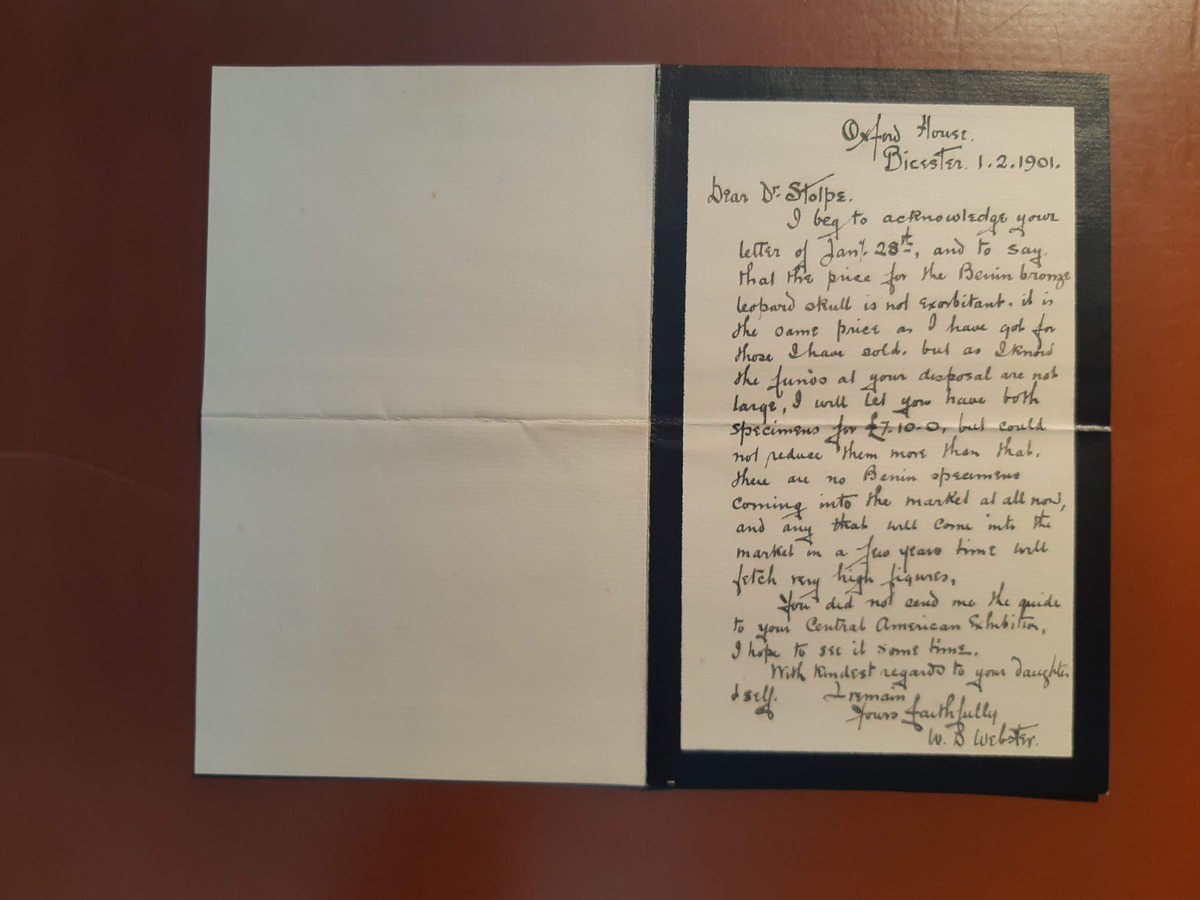 Oxford House.
Bicester. 1.2.1901.
Dear Dr. Stolpe.
I beg to acknowledge your
letter of Jany. 28th, and to say
that the price for the Benin bronze
leopard skull is not exorbitant, it is
the same price as I have got for
those I have sold. but as I know
the funds at your disposal are not
large, I will let you have both
specimens for £7-10-0, but could
not reduce them more than that.
there are no Benin specimens
coming into the market at all now,
and any that will come into the
market in a few years time will
fetch very high figures.
You did not send me the guide
to your Central American Exhibition,
I hope to see it some time.
With kindest regards to your daughter
& self. I remain
Yours faithfully
W. D Webster.